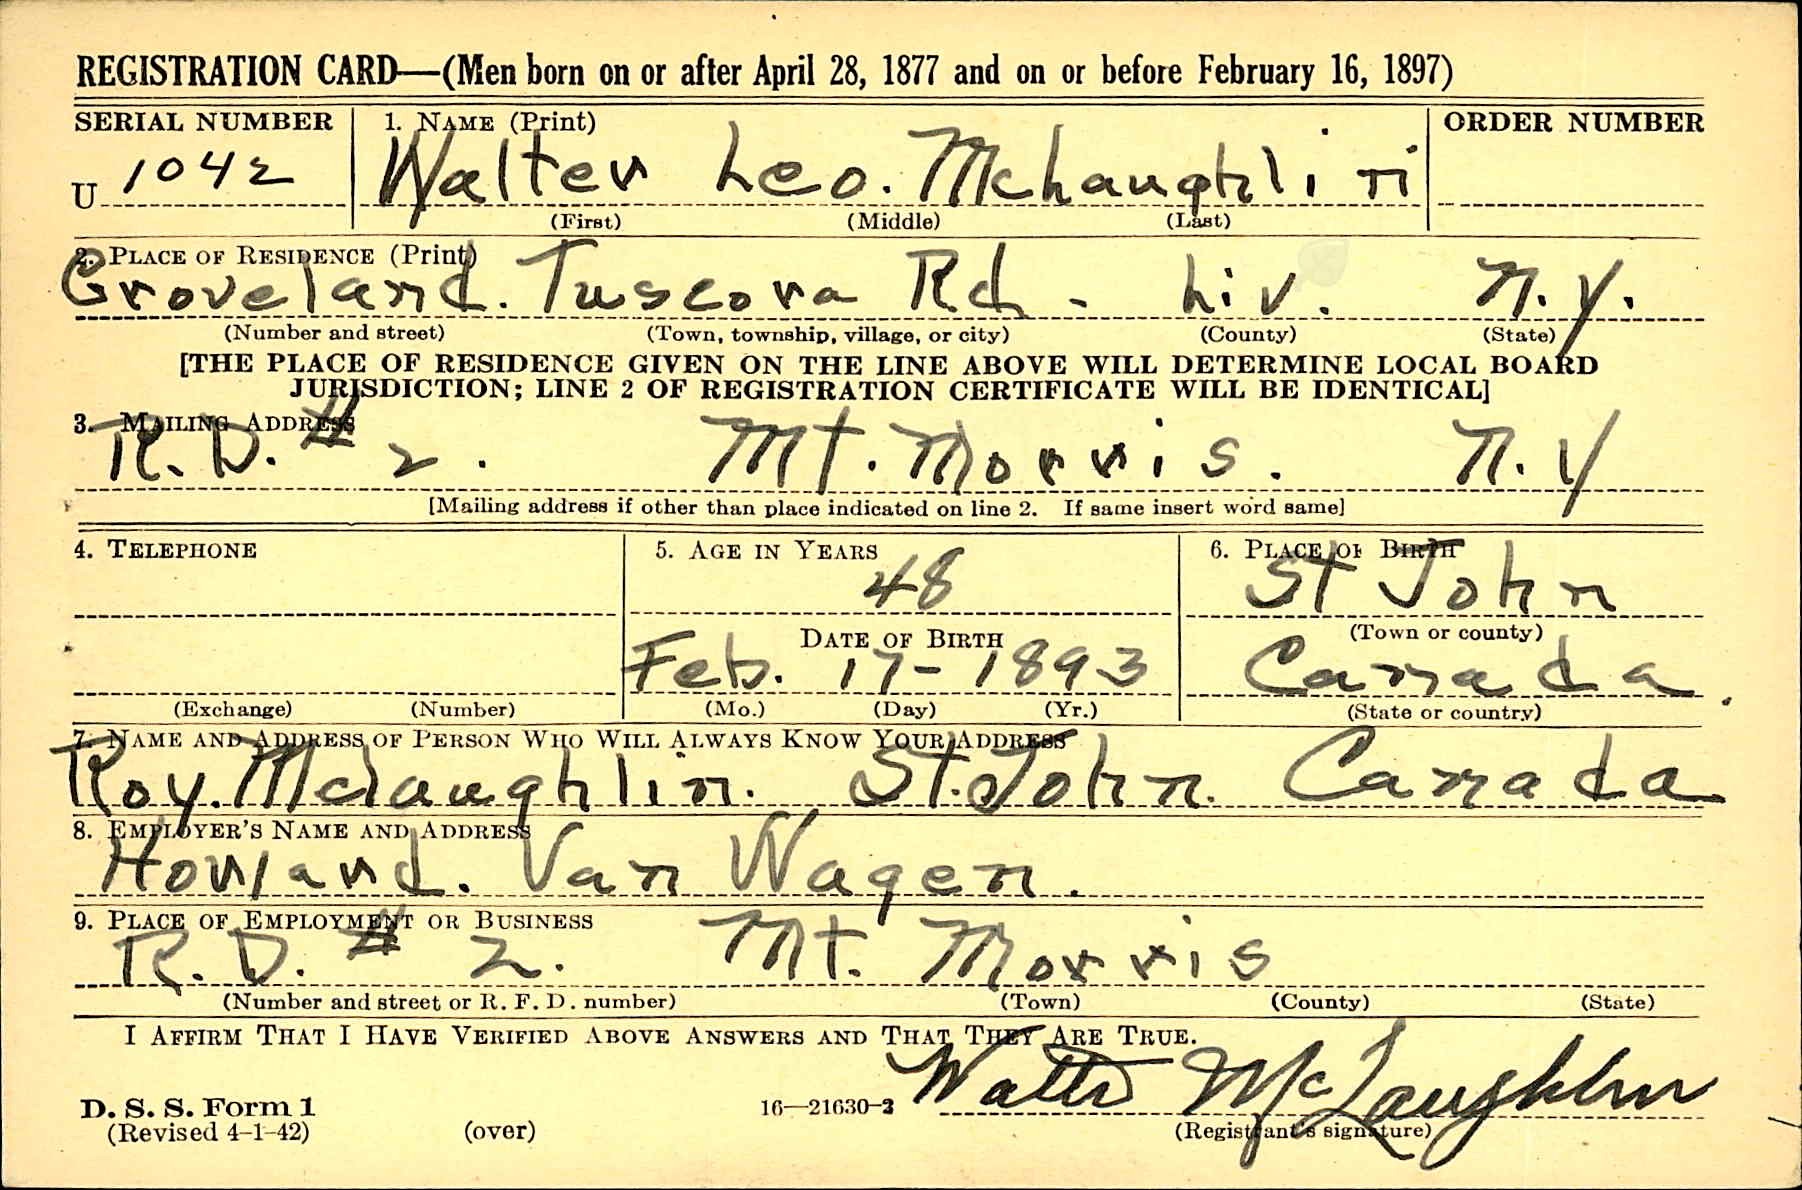 REGISTRATION CARD—(Men born on or after April 28, 1877 and on or before February 16, 1897)
SERIAL NUMBER 1. NAME (Print) ORDER NUMBER
U 1042 Walter Leo. McLaughlin
(First) (Middle) (Last)
2. PLACE OF RESIDENCE (Print)
Groveland. Tuscora Rd - Liv. N.Y.
(Number and street) (Town, township, village, or city) (County) (State)
[THE PLACE OF RESIDENCE GIVEN ON THE LINE ABOVE WILL DETERMINE LOCAL BOARD
JURISDICTION; LINE 2 OF REGISTRATION CERTIFICATE WILL BE IDENTICAL]
3. MAILING ADDRESS
R.D. # 2. Mt. Morris. N.Y
[Mailing address if other than place indicated on line 2. If same insert word same]
4. TELEPHONE 5. AGE IN YEARS 6. PLACE OF BIRTH
48 St John
DATE OF BIRTH (Town or county)
Feb. 17-1893 Canada.
(Exchange) (Number) (Mo.) (Day) (Yr.) (State or country)
7. NAME AND ADDRESS OF PERSON WHO WILL ALWAYS KNOW YOUR ADDRESS
Roy. McLaughlin. St. John. Canada
8. EMPLOYER'S NAME AND ADDRESS
Howland. Van Wagen.
9. PLACE OF EMPLOYMENT OR BUSINESS
R.D. # 2. Mt. Morris
(Number and street or R. F. D. number) (Town) (County) (State)
I AFFIRM THAT I HAVE VERIFIED ABOVE ANSWERS AND THAT THEY ARE TRUE.
Walter McLaughlin
D. S. S. Form 1 16—21630-2
(Revised 4-1-42) (over) (Registrant's signature)